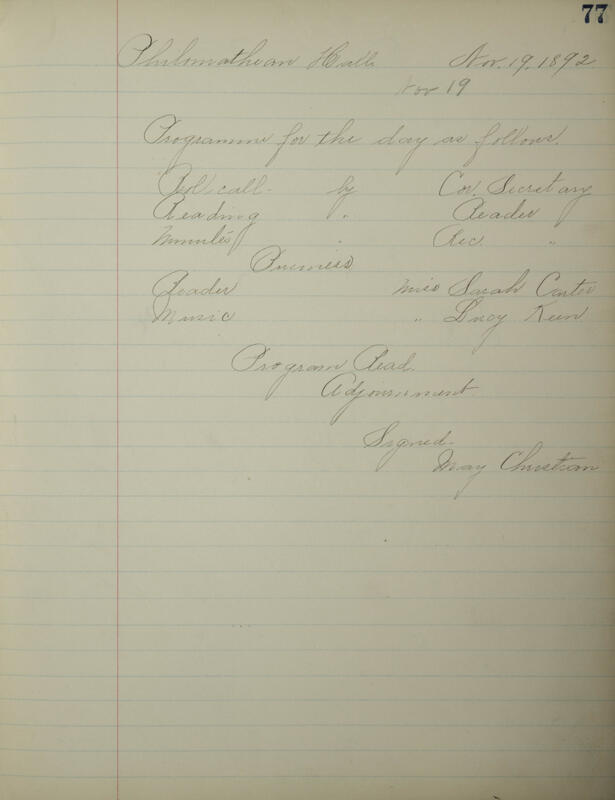 77
Philomathean Hall Nov. 19, 1892
Nov 19
Programme for the day as follows.
Roll call - by Cor. Secretary
Reading " Reader
Minutes " Rec. "
Business
Reader Miss Sarah Carter
Music " Lucy Keen
Program Read.
Adjournment
Signed -
May Christian